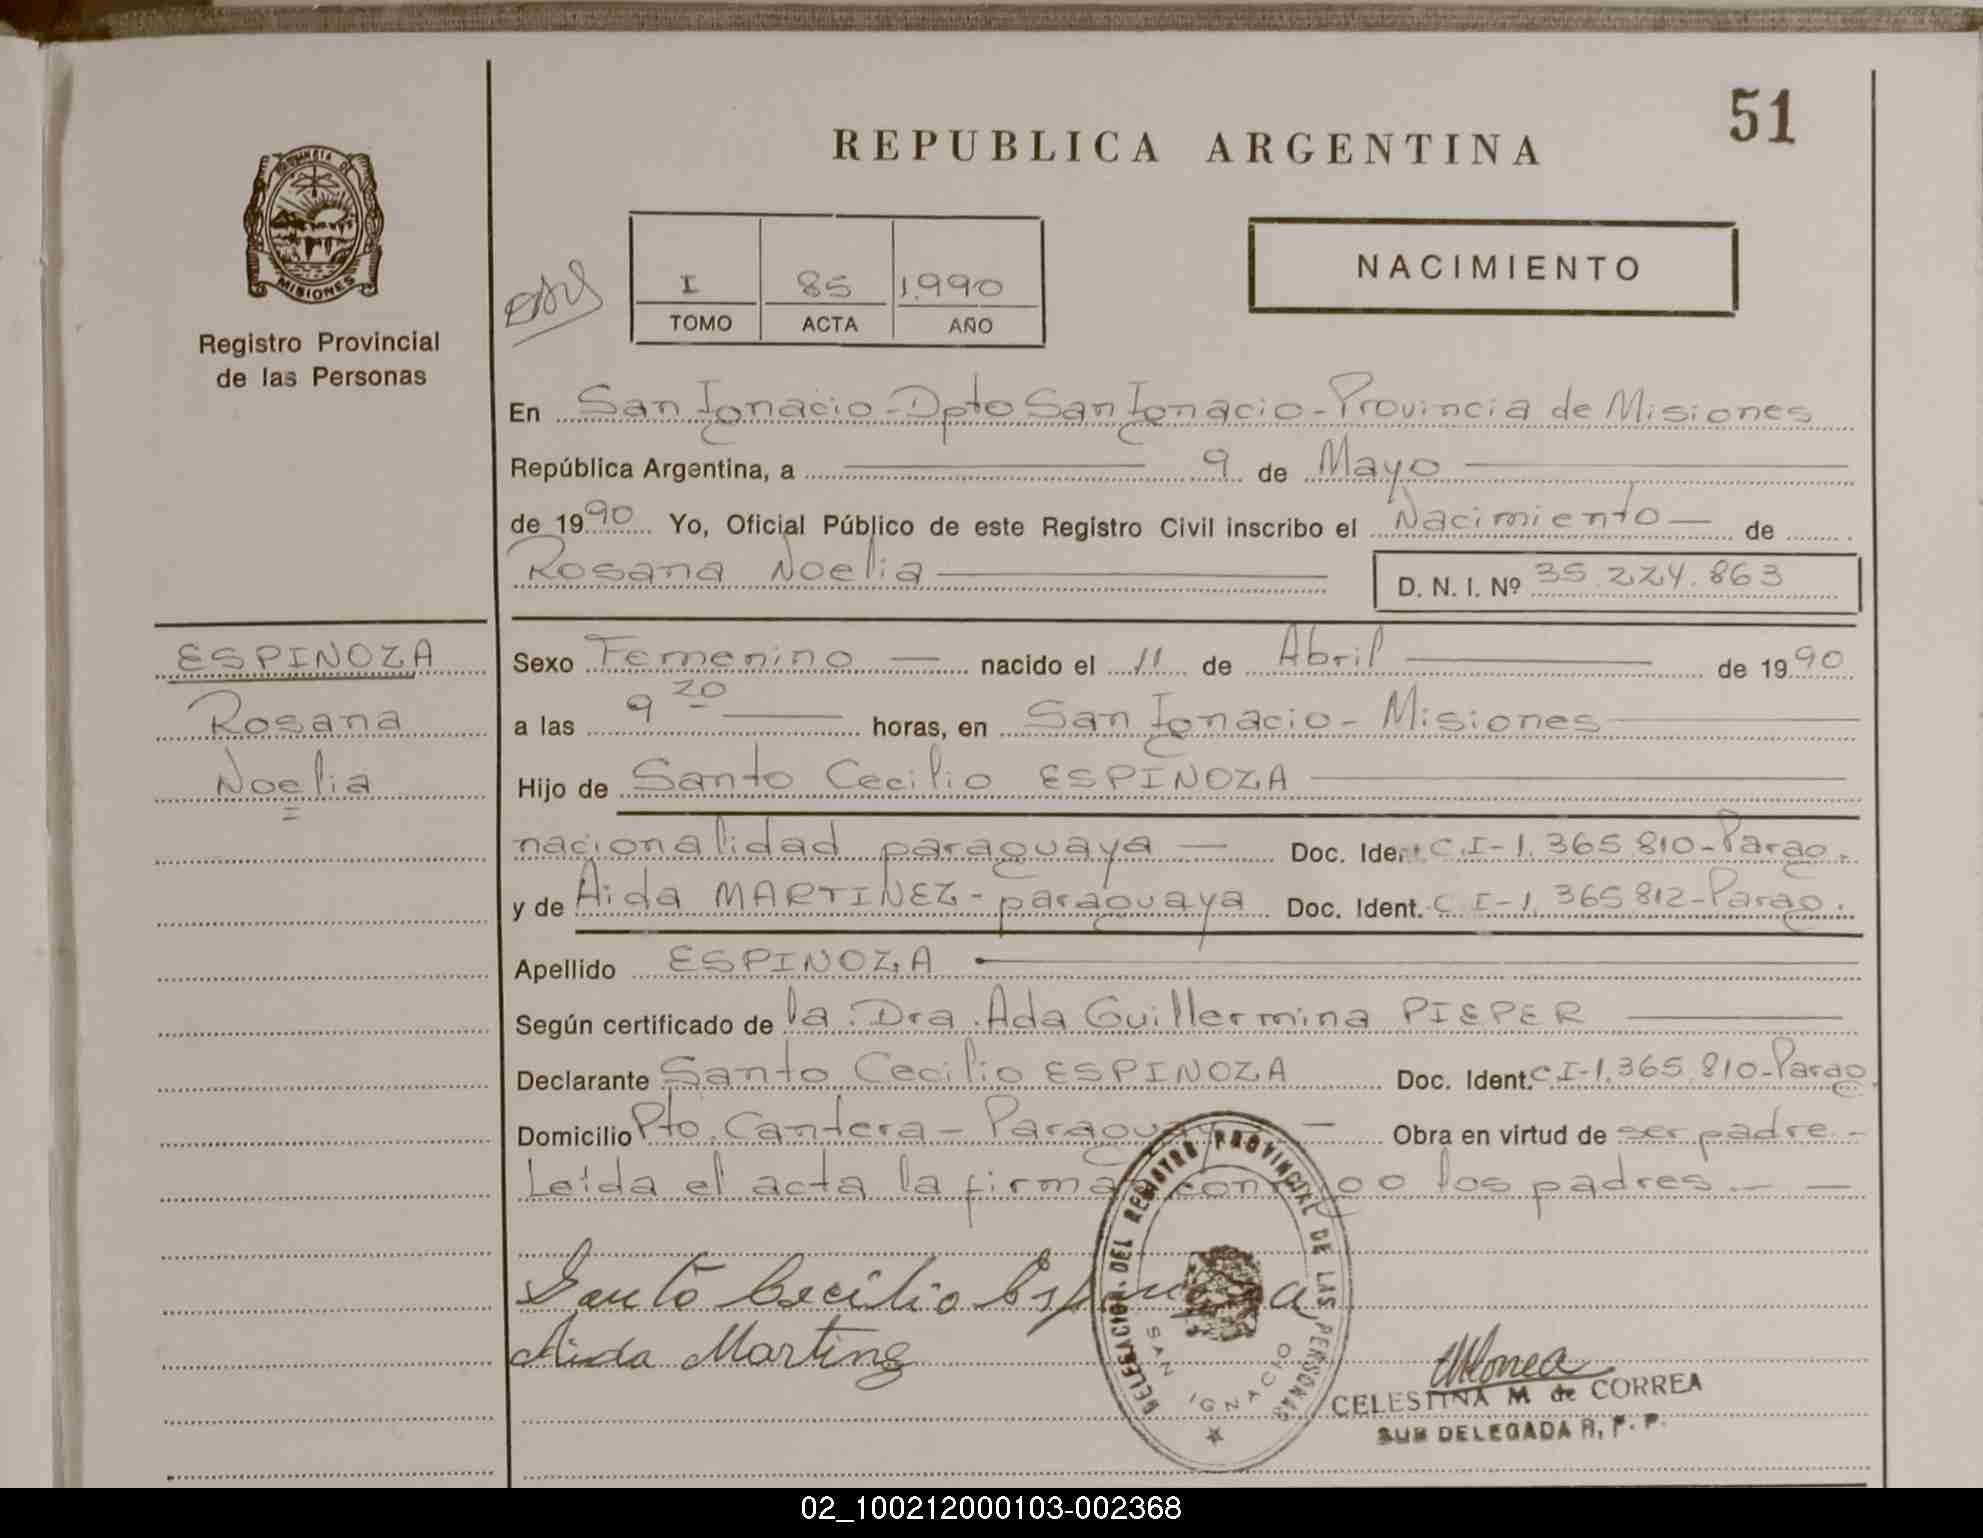 51
REPUBLICA ARGENTINA
PROVINCIA DE
MISIONES
Registro Provincial
de las Personas
I 85 1.990
TOMO ACTA AÑO
NACIMIENTO
En San Ignacio - Dpto San Ignacio - Provincia de Misiones
República Argentina, a 9 de Mayo
de 1990 Yo, Oficial Público de este Registro Civil inscribo el Nacimiento — de
Rosana Noelia
D. N. I. Nº 35.224.863
ESPINOZA
Rosana
Noelia
Sexo Femenino — nacido el 11 de Abril de 1990
a las 9 20 horas, en San Ignacio - Misiones
Hijo de Santo Cecilio ESPINOZA
nacionalidad paraguaya — Doc. Ident C.I-1.365.810-Parag.
y de Aida MARTINEZ - paraguaya Doc. Ident. C.I-1.365.812-Parag.
Apellido ESPINOZA
Según certificado de la Dra. Ada Guillermina PIEPER
Declarante Santo Cecilio ESPINOZA Doc. Ident. C.I-1.365.810-Parag.
Domicilio Pto. Cantera - Paraguay — Obra en virtud de ser padre. -
Leída el acta la firma conmigo los padres. — —
Santo Cecilio Espinoza
Aida Martinez
DELEGACION DEL REGISTRO PROVINCIAL DE LAS PERSONAS
SAN IGNACIO
CELESTINA M de CORREA
SUB DELEGADA R. P. P.
02_100212000103-002368